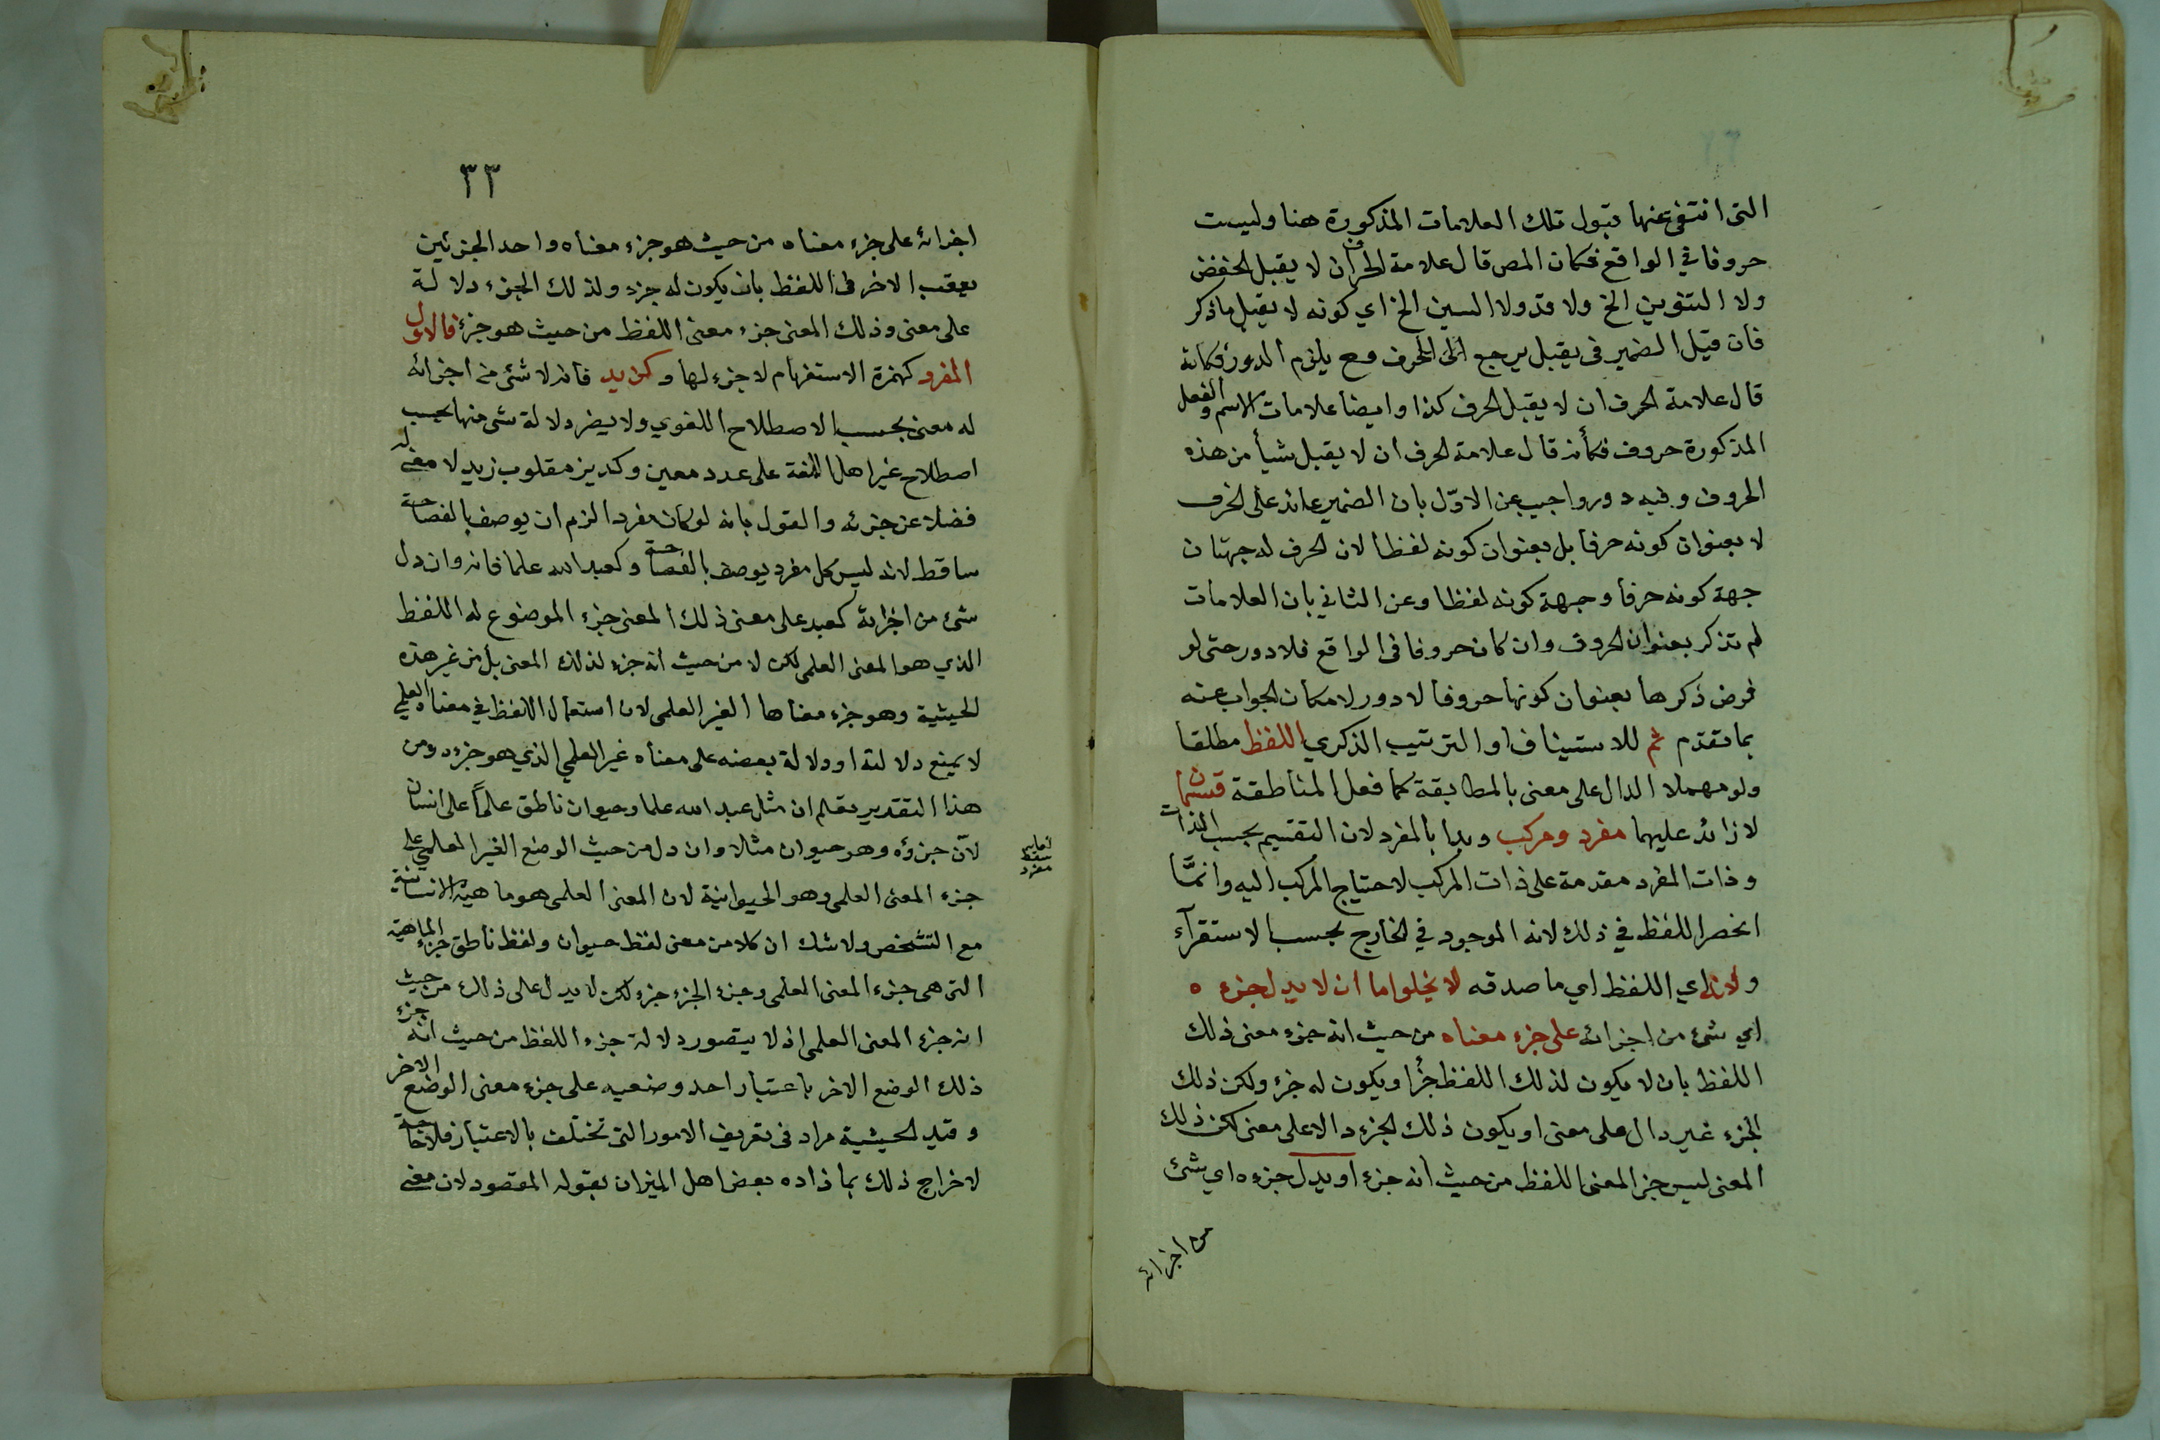 التى انتفى عنها قبول تلك العلامات المذكورة هنا وليست
حروفا في الواقع فكان المص قال علامة الحرف ان لا يقبل الخفض
ولا التنوين الخ ولا قد ولا السين الخ اي كونه لا يقبل ما ذكر
فان قيل الضمير فى يقبل يرجع الى الحرف وح يلزم الدور فكانه
قال علامة الحرف ان لا يقبل الحرف كذا وايضا علامات الاسم والفعل
المذكورة حروف فكأنه قال علامة الحرف ان لا يقبل شيأ من هذه
الحروف وفيه دور واجيب عن الاوّل بان الضمير عائد على الحرف
لا بعنوان كونه حرفا بل بعنوان كونه لفظا لان الحرف له جهتان
جهة كونه حرفا وجهة كونه لفظا وعن الثاني بان العلامات
لم تذكر بعنوان الحروف وان كان حروفا فى الواقع فلا دور حتى لو
فرض ذكرها بعنوان كونها حروفا لا دور لامكان الجواب عنه
بما تقدم ثم للاستيناف او الترتيب الذكري اللفظ مطلقا
ولو مهملا الدال على معنى بالمطابقة كما فعل المناطقة قسمان
لا زائد عليهما مفرد ومركب وبدا بالمفرد لان التقسيم بحسب الذات
وذات المفرد مقدمة على ذات المركب لاحتياج المركب اليه وانمَّا
انحصر اللفظ في ذلك لانه الموجود في الخارج بحسب الاستقرآء
ولانه اي اللفظ اي ما صدقه لا يخلوا ما ان لا يدل جزءه
اي شئ من اجزائه على جزء معناه من حيث انه جزء معنى ذلك
اللفظ بان لا يكون لذلك اللفظ جزأ ويكون له جزء ولكن ذلك
الجزء غير دال على معنى او يكون ذلك الجزء دالا على معنى لكن ذلك
المعنى ليس جزا لمعنى اللفظ من حيث انه جزء او يدل جزءه اي شئ
من اجزائه
٣٣
اجزائه على جزء معناه من حيث هو جزء معناه واحد الجزئين
يعقب الاخر فى اللفظ بان يكون له جزء ولذلك الجزء دلالة
على معنى وذلك المعنى جزء معنى اللفظ من حيث هو جزء فالاول
المفرد كهمزة الاستفهام لا جزء لها وكزيد فانه لا شئ من اجزائه
له معنى بحسب الاصطلاح اللغوي ولا يضر دلالة شئ منها بحسب
اصطلاح غير اهل اللغة على عدد معين وكديز مقلوب زيد لا معنى له
فضلا عن جزئه والقول بانه لو كان مفردا لزم ان يوصف بالفصاحة
ساقط لانه ليس كل مفرد يوصف بالفصاحة وكعبد الله علما فانه وان دل
شئ من اجزائه كعبد على معنى ذلك المعنى جزء الموضوع له اللفظ
الذي هو المعنى العلمى لكن لا من حيث انه جزء لذلك المعنى بل من غير هذه
الحيثية وهو جزء معناها الغير العلمى لان استعمال اللفظ في معناه العلمي
لا يمنع دلالته او دلالة بعضه على معناه غير العلمي الذي هو جزءه ومن
هذا التقدير يعلم ان مثل عبد الله علما وحيوان ناطق علمًا على انسان
لانّ جزؤه وهو حيوان مثلا وان دل من حيث الوضع الغير العلمي على
جزء المعنى العلمى وهو الحيوانية لان المعنى العلمى هو ماهية الانسانية
مع التشخص ولا شك ان كلا من معنى لفظ حيوان ولفظ ناطق جزء الماهية
التى هى جزء المعنى العلمى وجزء الجزء جزء لكن لا يدل على ذلك من حيث
انه جزء المعنى العلمى اذ لا يتصور دلالة جزء اللفظ من حيث انه جزء
ذلك الوضع الاخر باعتبار احد وضعيه على جزء معنى الوضع الاخر
وقيد الحيثية مراد فى تعريف الامور التى تختلف بالاعتبار فلا حاجة
لاخراج ذلك بما زاده بعض اهل الميزان بقوله المقصود لان معنى